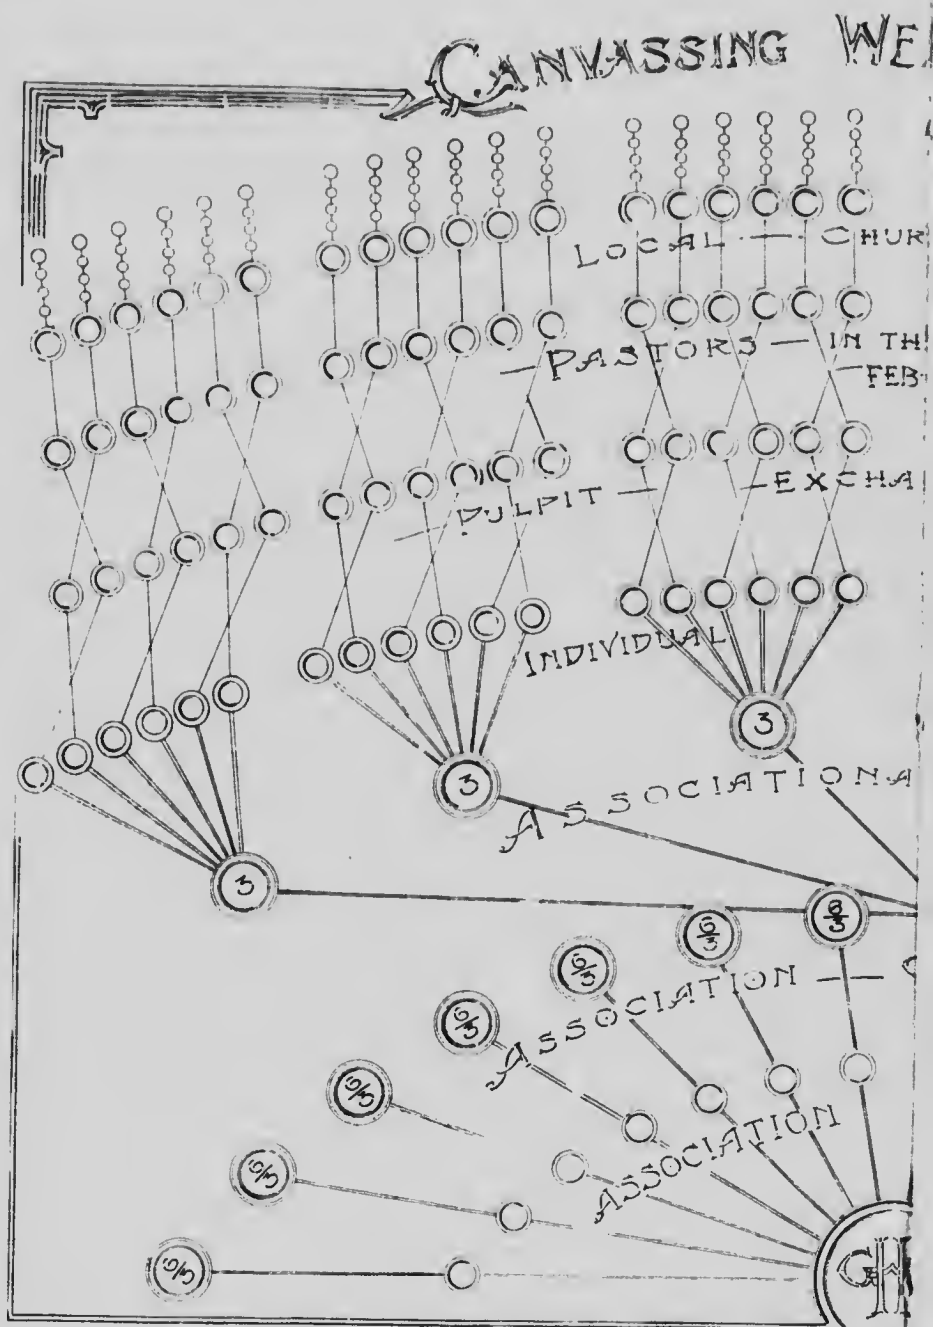 CANVASSING WE
LOCAL — CHUR
PASTORS — IN TH
— FEB.
— PULPIT — — EXCHA
INDIVIDUAL
3
3
ASSOCIATIONA
3
6/3
6/3
6/3
ASSOCIATION —
6/3
6/3
ASSOCIATION
6/3